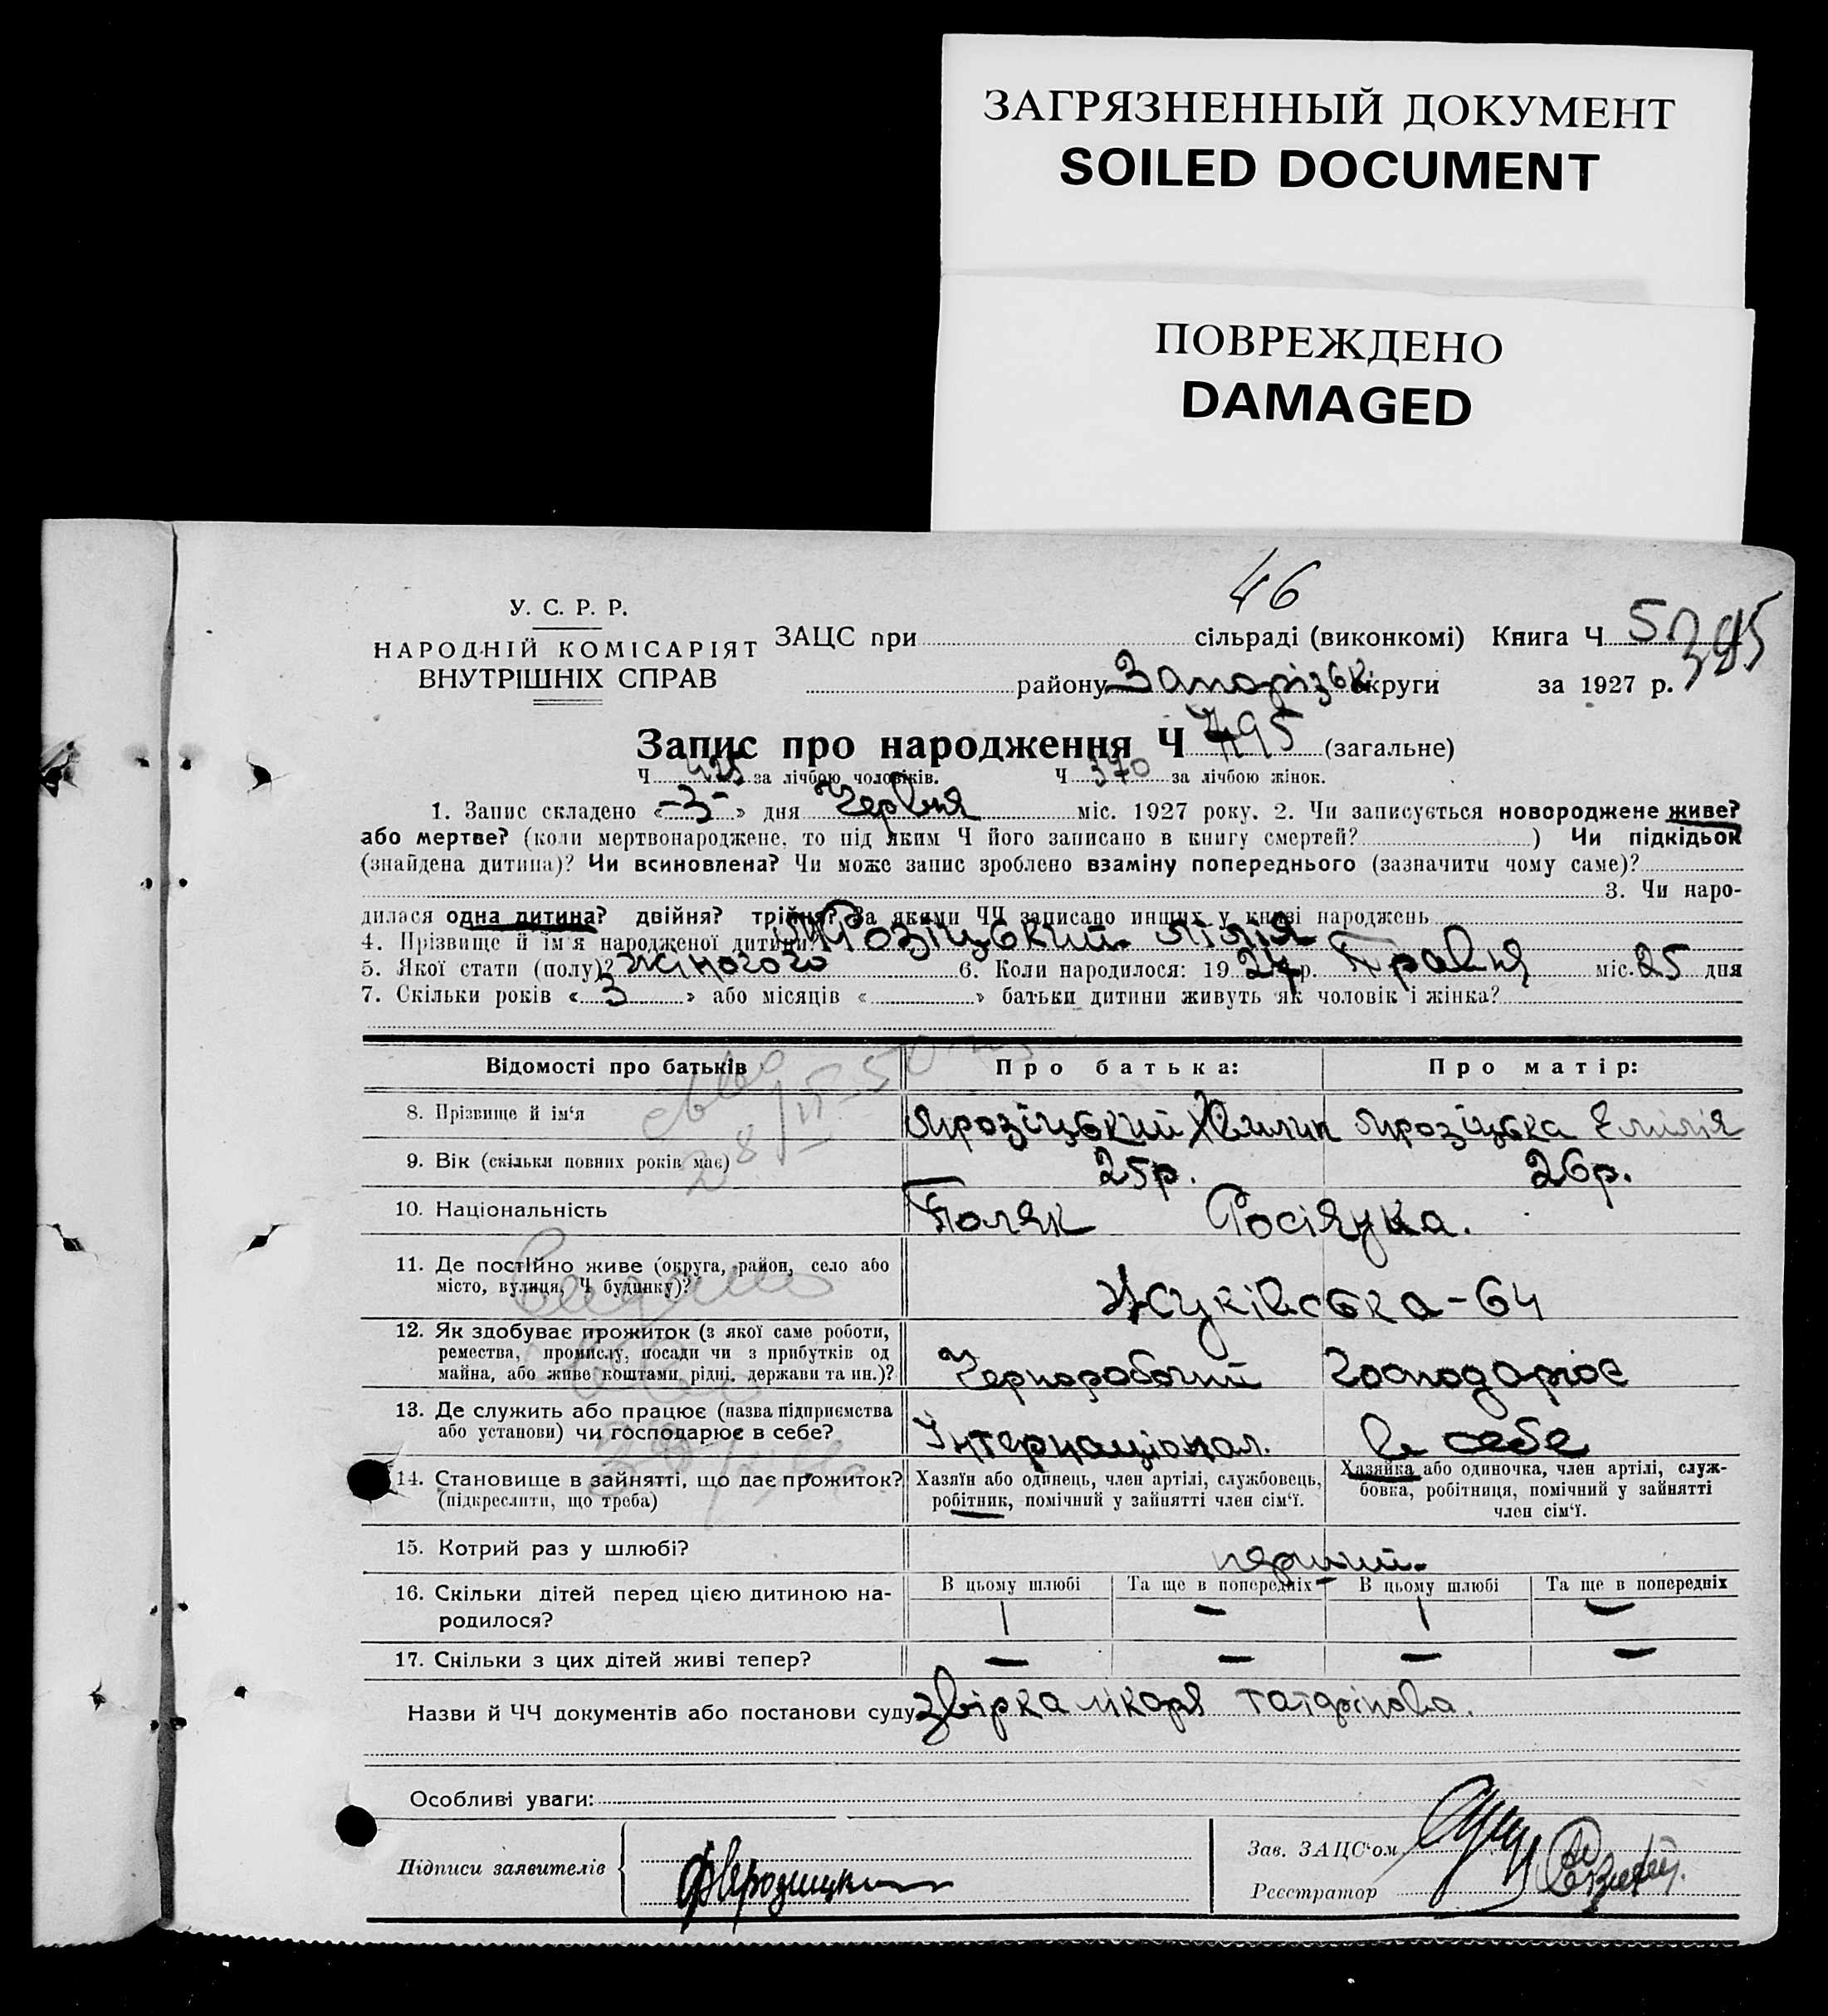 ЗАГРЯЗНЕННЫЙ ДОКУМЕНТ
SOILED DOCUMENT
ПОВРЕЖДЕНО
DAMAGED
46
У. С. Р. Р.
НАРОДНІЙ КОМІСАРІЯТ
ВНУТРІШНІХ СПРАВ
ЗАЦС при сільраді (виконкомі) Книга Ч 5
395
району Запорізьк. округи за 1927 р.
Запис про народження Ч 795 (загальне)
Ч 425 за лічбою чоловіків. Ч 370 за лічбою жінок.
1. Запис складено «-3-» дня Червня міс. 1927 року. 2. Чи записується новороджене живе?
або мертве? (коли мертвонароджене, то під яким Ч його записано в книгу смертей? ) Чи підкідьок
(знайдена дитина)? Чи всиновлена? Чи може запис зроблено взаміну попереднього (зазначити чому саме)?
3. Чи наро-
дилася одна дитина? двійня? трійня? За якими ЧЧ записано инших у книзі народжень
4. Прізвище й ім'я народженої дитини? Лілія
5. Якої стати (полу)? жіночого 6. Коли народилося: 1927 р. Травня міс. 25 дня
7. Скільки років «3» або місяців « » батьки дитини живуть як чоловік і жінка?
Відомості про батьків Про батька: Про матір:
8. Прізвище й ім'я Мрозіцький Мрозіцька Емілія
9. Вік (скільки повних років має) 25р. 26р.
10. Національність Поляк Росіянка.
11. Де постійно живе (округа, район, село або
місто, вулиця, Ч будинку)? Жуківська-64
12. Як здобуває прожиток (з якої саме роботи,
ремества, промислу, посади чи з прибутків од
майна, або живе коштами рідні, держави та ин.)? Чернробочий Господарює
13. Де служить або працює (назва підприємства
або установи) чи господарює в себе? Інтернаціонал. в себе
14. Становище в зайнятті, що дає прожиток?
(підкреслити, що треба)
Хазяїн або одинець, член артілі, службовець,
робітник, помічний у зайнятті член сім'ї.
Хазяйка або одиночка, член артілі, служ-
бовка, робітниця, помічний у зайнятті
член сім'ї.
15. Котрий раз у шлюбі? перший.
16. Скільки дітей перед цією дитиною на-
родилося?
В цьому шлюбі Та ще в попередніх В цьому шлюбі Та ще в попередніх
1 — 1 —
17. Скільки з цих дітей живі тепер? — — — —
Назви й ЧЧ документів або постанови суду звірка лікаря
Особливі уваги:
Підписи заявителів
Зав. ЗАЦС'ом
Реєстратор